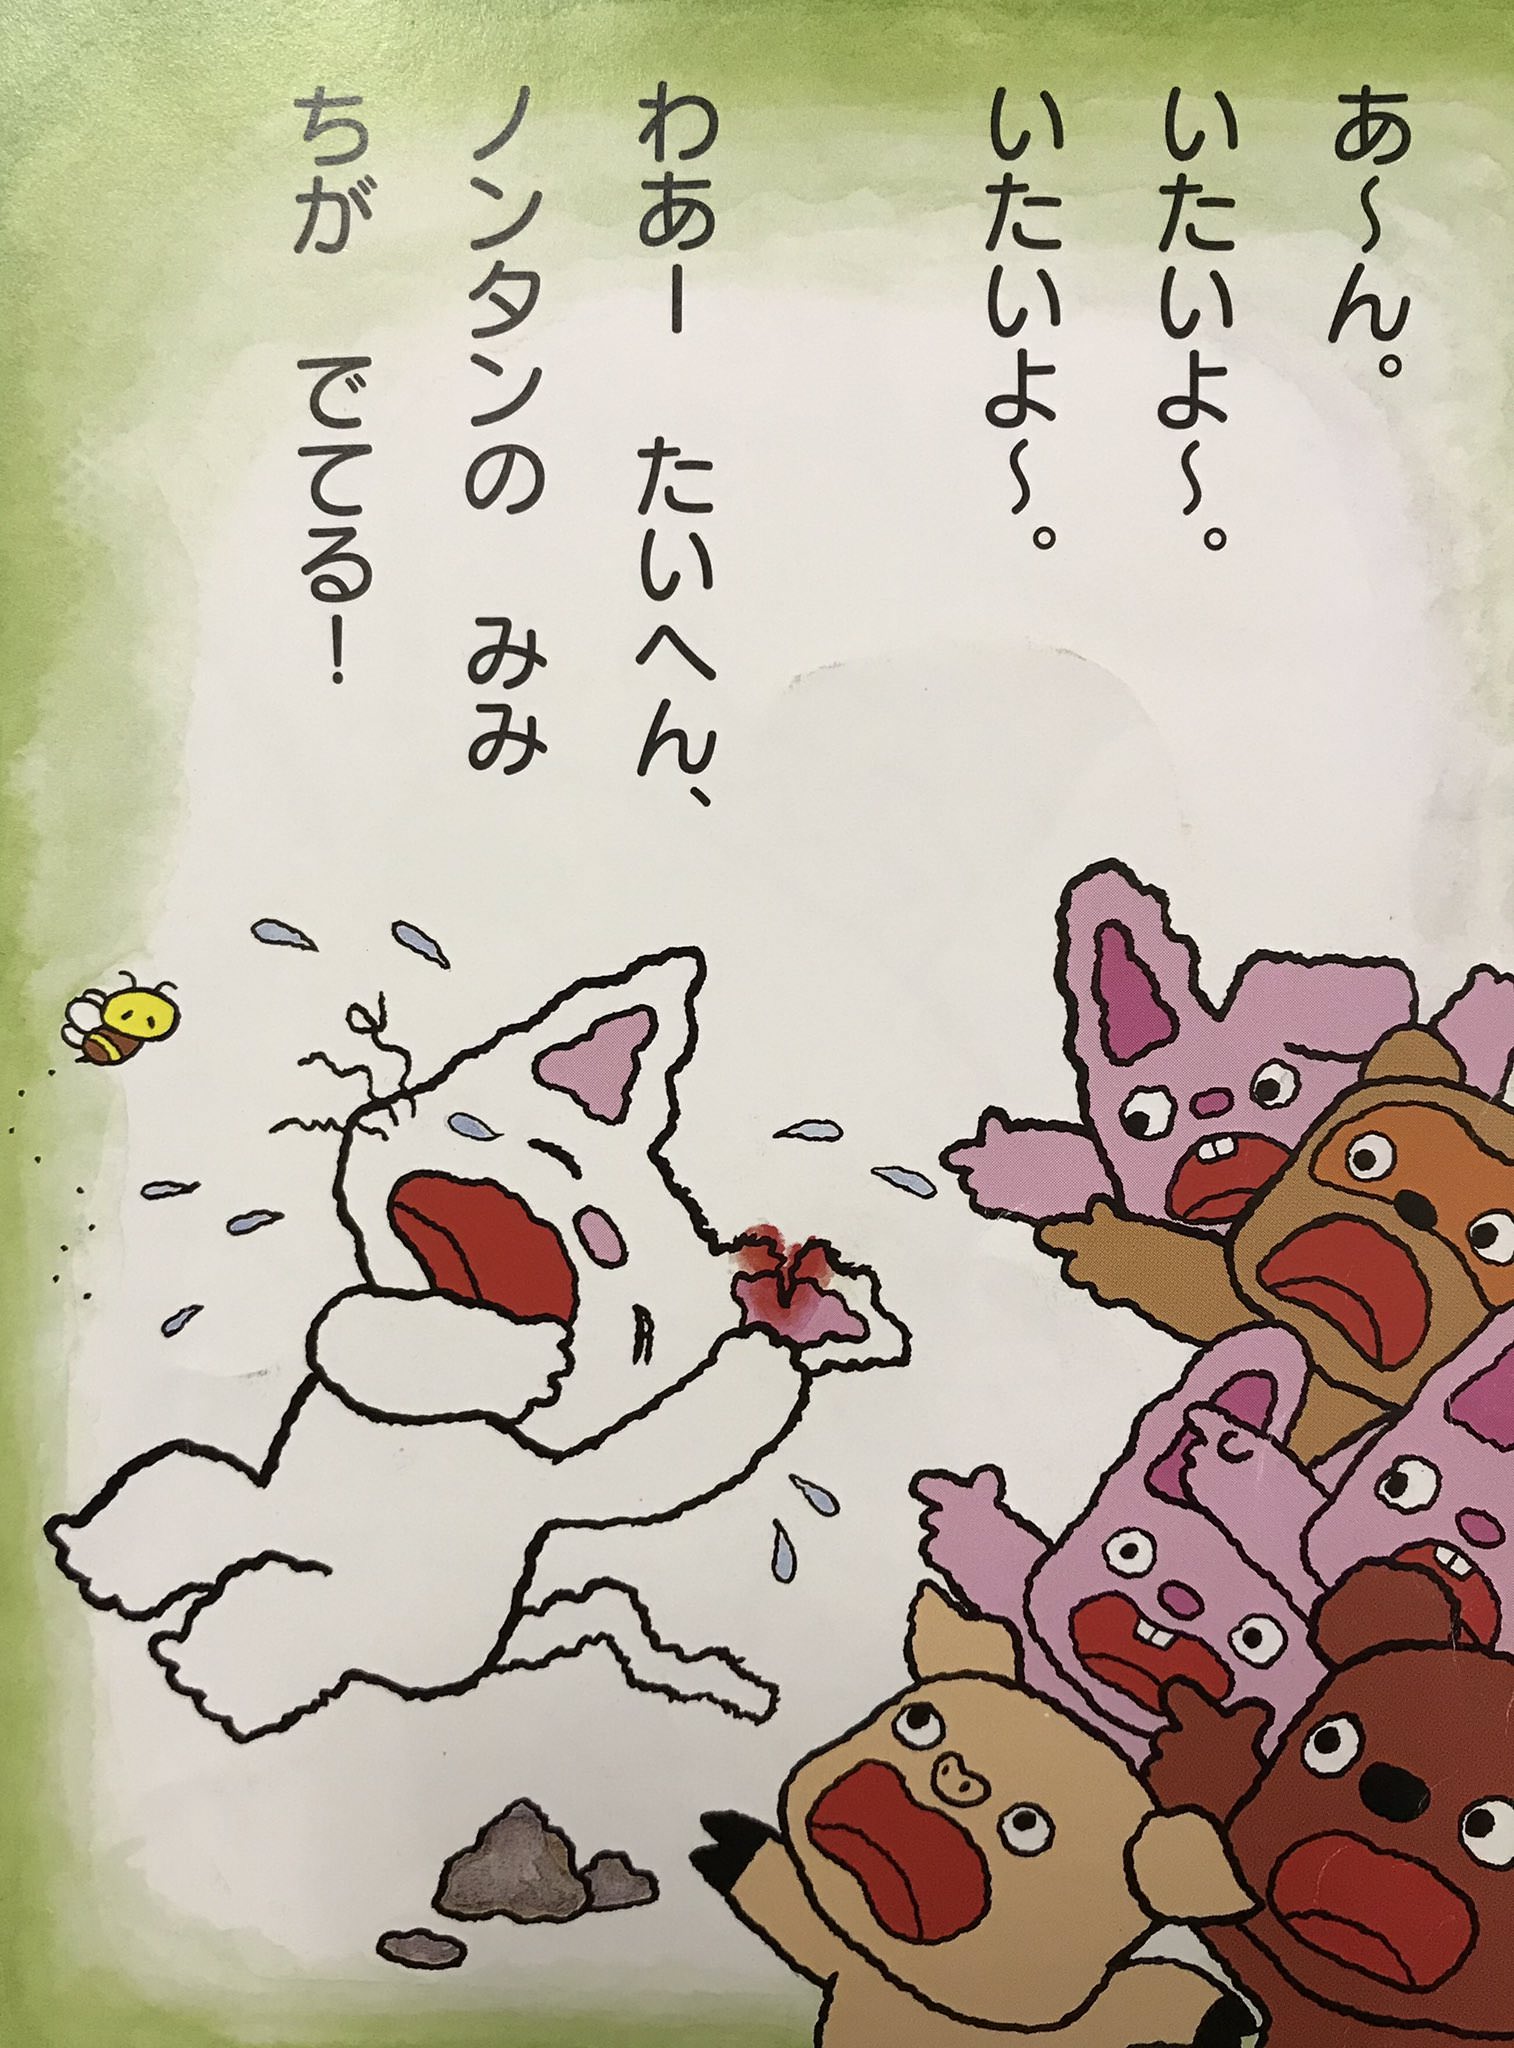 あ～ん。
いたいよ～。
いたいよ～。
わあー　たいへん、
ノンタンの　みみ
ちが　でてる！